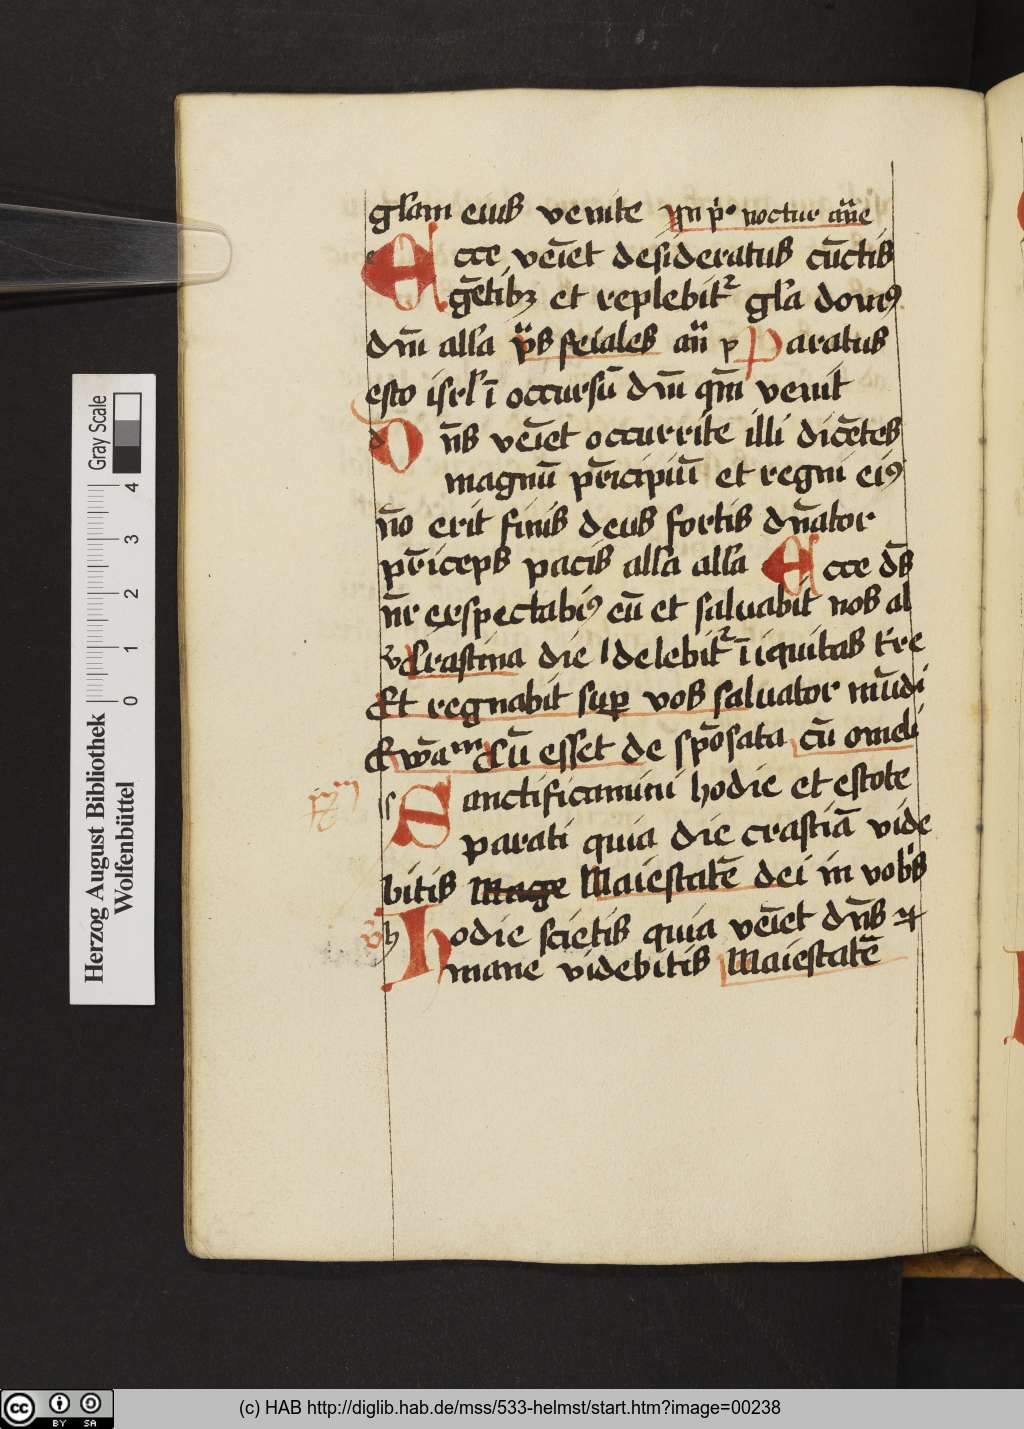 gl̄am eius venite ym pͥ noctur an̄e
Ecce vēiet desideratus cūctis
gētibꝫ et replebit᷑ gl̄a domꝯ
dn̄i all̄a p̄s feiales an̄ p Paratus
esto isrl̄ ī occursū dn̄i qm̄ venit
Dn̄s vēiet occurrite illi dicētes
magnū pr̄icipiū et regni eiꝯ
nō erit finis deus fortis dn̄ator
pr̄iceps pacis all̄a all̄a Ecce ds̄
nr̄ exspectabiꝯ eū et saluabit nos al
v̄ Crastina die delebit᷑ īiquitas tr̄e
Et regnabit suꝑ vos saluator mūdi
Ewāᵐ Cū esset de spōsata cū omeli
Sanctificamini hodie et estote
parati quia die crastīa vide
bitis Mage Maiestatē dei in vob̄s
Hodie scietis quia vēiet dn̄s ⁊
mane videbitis Maiestatē
Gray Scale
4 3 2 1 0
Herzog August Bibliothek
Wolfenbüttel
cc BY SA
(c) HAB http://diglib.hab.de/mss/533-helmst/start.htm?image=00238